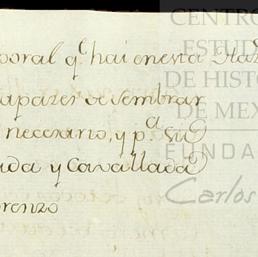 poral q.e hai en esta Haz
capazes de sembrar
necesario, y p.a su
ida y Cavallada
orenzo
CENTRO
ESTUD
DE HISTO
DE MÉX
FUNDA
Carlos